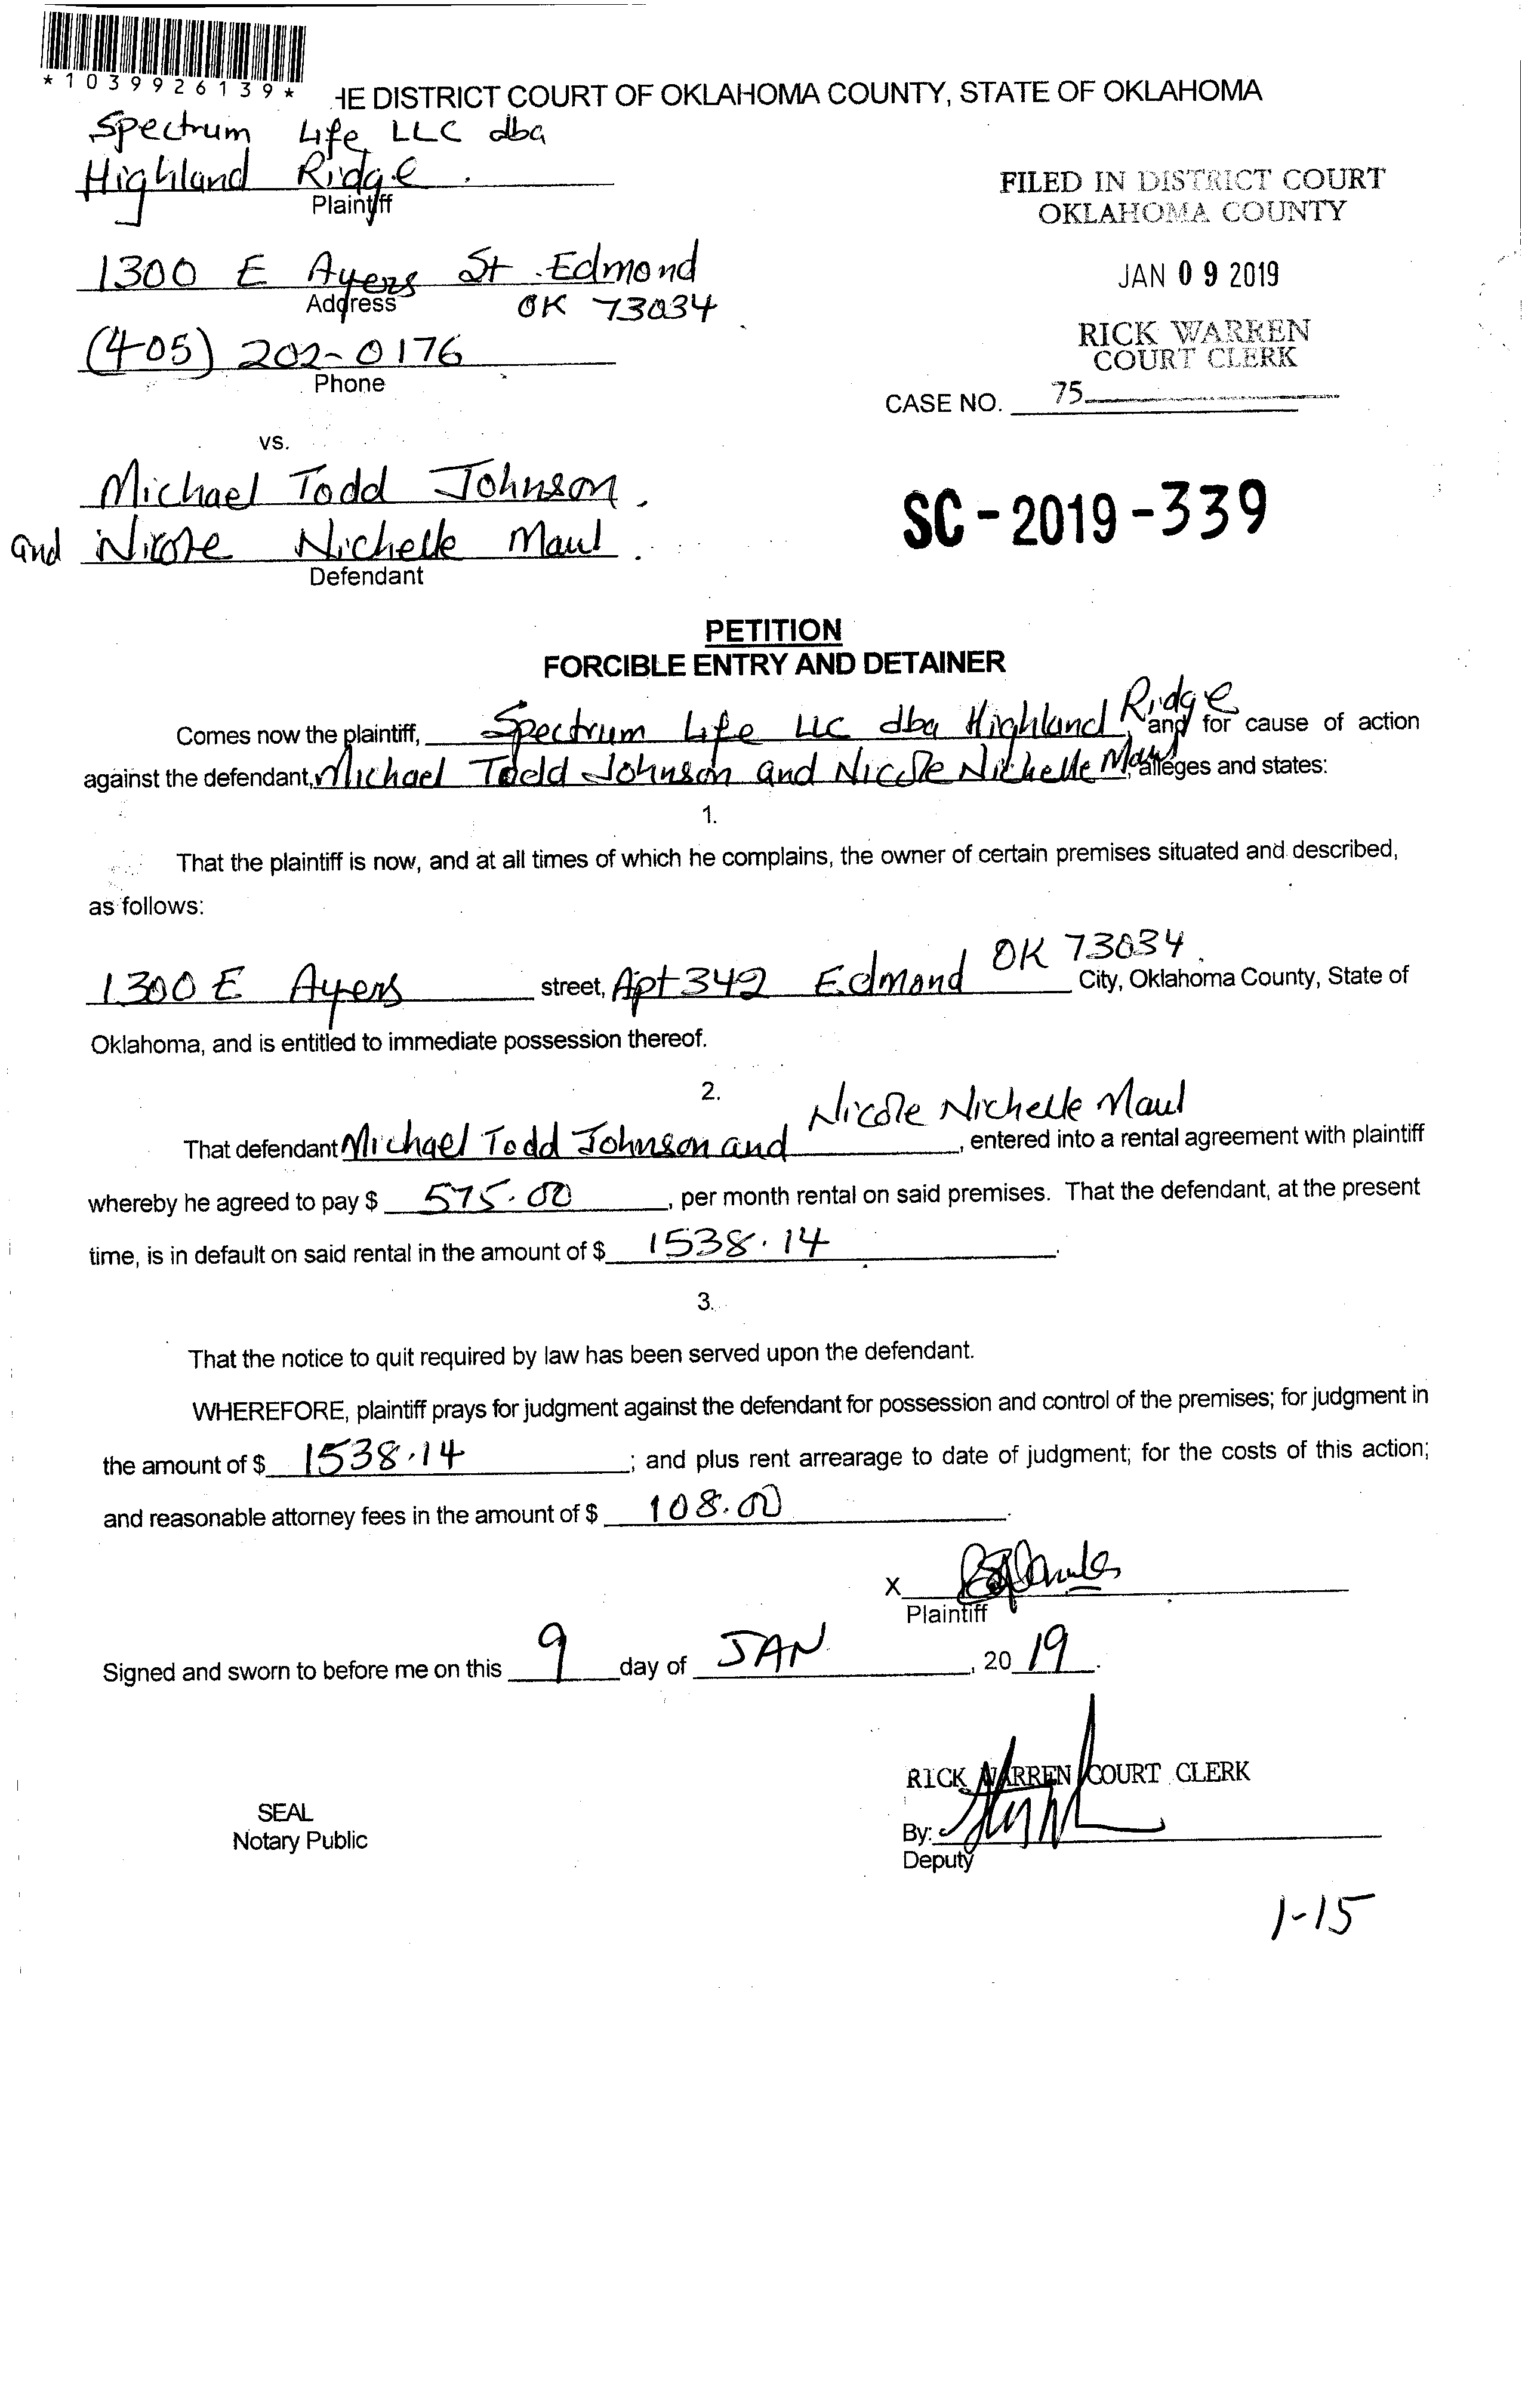 *1039926139*
HE DISTRICT COURT OF OKLAHOMA COUNTY, STATE OF OKLAHOMA
Spectrum Life LLC dba
Highland Ridge.
Plaintiff
FILED IN DISTRICT COURT
OKLAHOMA COUNTY
1300 E Ayers St. Edmond
Address OK 73034
JAN 09 2019
(405) 202-0176
Phone
RICK WARREN
COURT CLERK
CASE NO. 75
vs.
Michael Todd Johnson.
and Nicole Nichelle Maul.
Defendant
SC-2019-339
PETITION
FORCIBLE ENTRY AND DETAINER
Comes now the plaintiff, Spectrum Life LLC dba Highland Ridge, and for cause of action
against the defendant, Michael Todd Johnson and Nicole Nichelle Maul, alleges and states:
1.
That the plaintiff is now, and at all times of which he complains, the owner of certain premises situated and described,
as follows:
1300 E Ayers street, Apt 342 Edmond OK 73034. City, Oklahoma County, State of
Oklahoma, and is entitled to immediate possession thereof.
2.
That defendant Michael Todd Johnson and Nicole Nichelle Maul, entered into a rental agreement with plaintiff
whereby he agreed to pay $ 575.00, per month rental on said premises. That the defendant, at the present
time, is in default on said rental in the amount of $ 1538.14.
3.
That the notice to quit required by law has been served upon the defendant.
WHEREFORE, plaintiff prays for judgment against the defendant for possession and control of the premises; for judgment in
the amount of $ 1538.14; and plus rent arrearage to date of judgment; for the costs of this action;
and reasonable attorney fees in the amount of $ 108.00.
X
Plaintiff
Signed and sworn to before me on this 9 day of JAN, 2019.
RICK WARREN COURT CLERK
SEAL
Notary Public
By:
Deputy
1-15